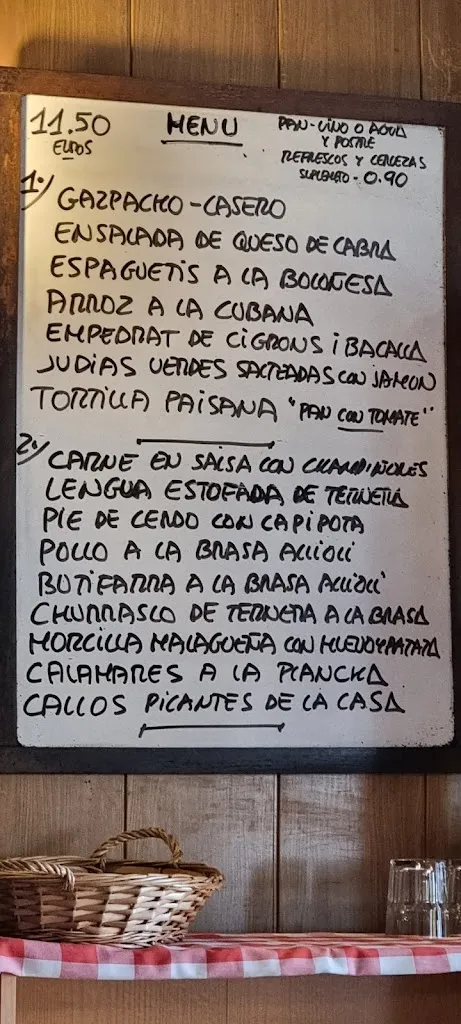 11.50
EUROS
MENU
PAN-VINO O AGUA
Y POSTRE
REFRESCOS Y CERVEZAS
SUPLEMENTO - 0.90
1º/
GAZPACHO-CASERO
ENSALADA DE QUESO DE CABRA
ESPAGUETIS A LA BOLOÑESA
ARROZ A LA CUBANA
EMPEDRAT DE CIGRONS i BACALLA
JUDIAS VERDES SALTEADAS CON JAMON
TORTILLA PAISANA "PAN CON TOMATE"
2º/
CARNE EN SALSA CON CHAMPIÑONES
LENGUA ESTOFADA DE TERNERA
PIE DE CERDO CON CAPIPOTA
POLLO A LA BRASA ALLIOLI
BOTIFARRA A LA BRASA ALLIOLI
CHURRASCO DE TERNERA A LA BRASA
MORCILLA MALAGUEÑA CON HUEVO Y PATATA
CALAMARES A LA PLANCHA
CALLOS PICANTES DE LA CASA